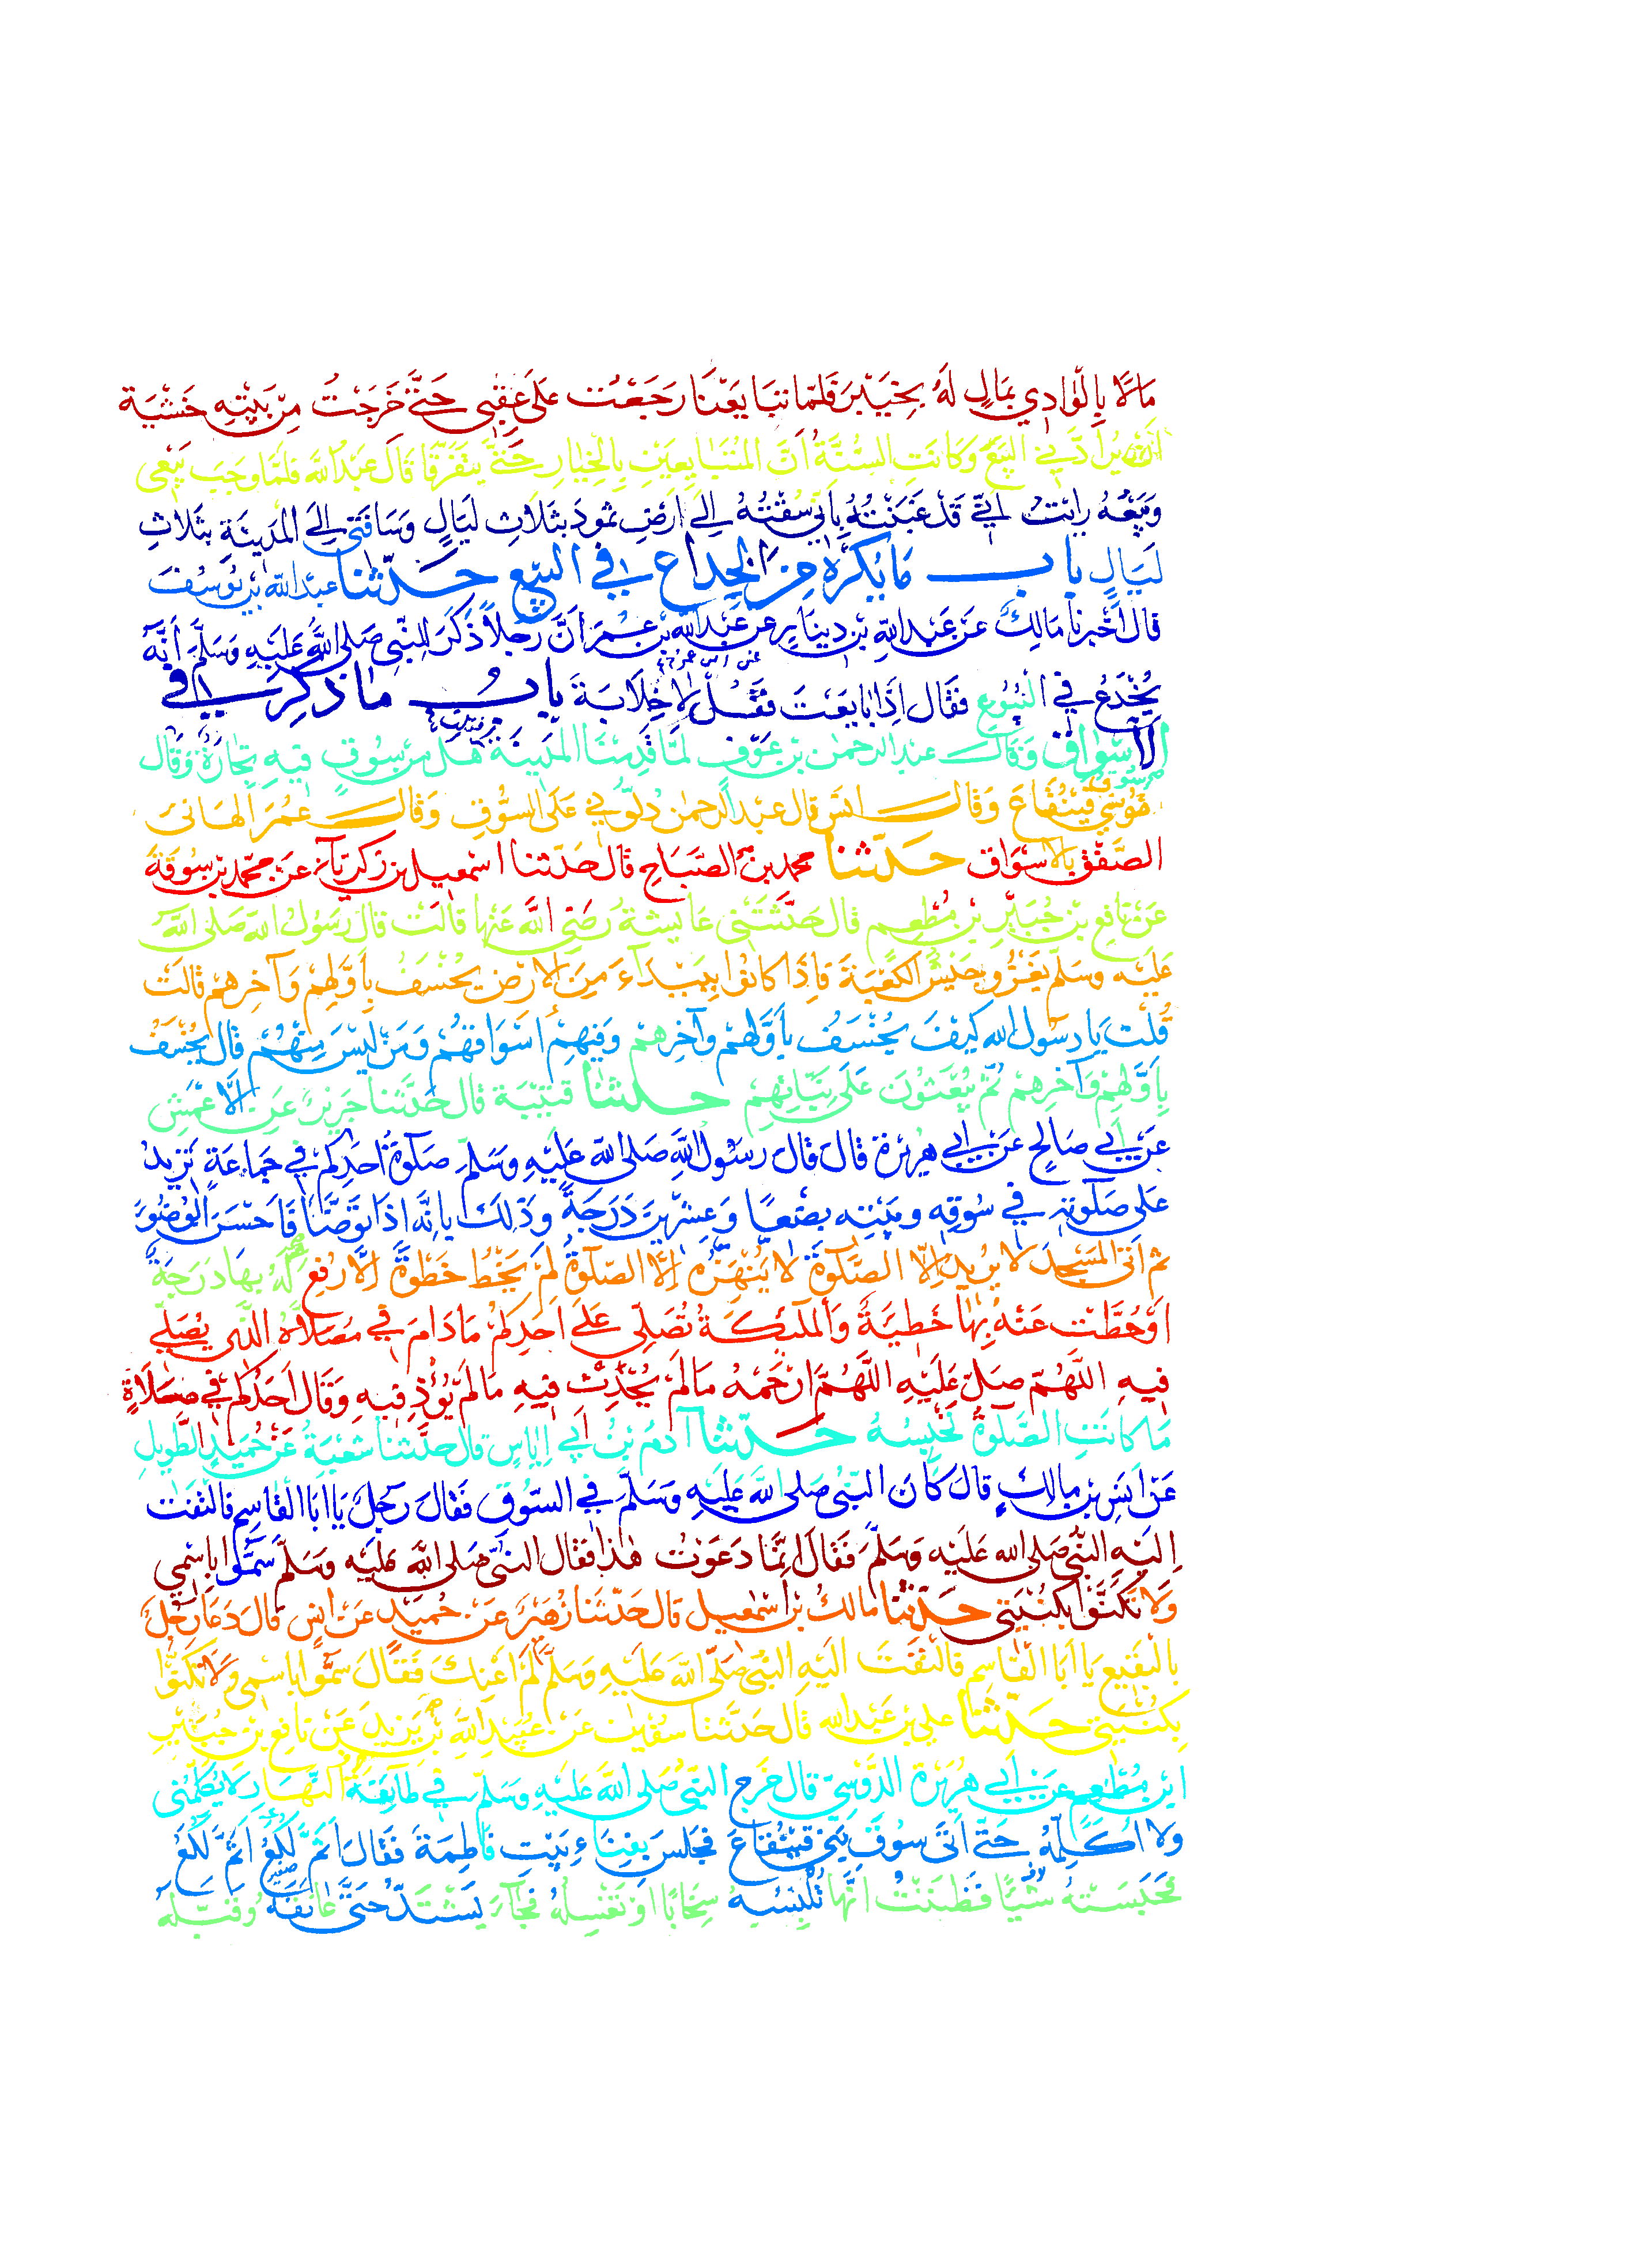 مَالًا بِالْوَادِي بِمَالٍ لَهُ بِخَيْبَرَ فَلَمَّا تَبَايَعْنَا رَجَعْتُ عَلَى عَقِبِي حَتَّى خَرَجْتُ مِنْ بَيْتِهِ خَشْيَةَ
أَنْ يُرَادَّنِي الْبَيْعَ وَكَانَتِ السُّنَّةُ أَنَّ الْمُتَبَايِعَيْنِ بِالْخِيَارِ حَتَّى يَتَفَرَّقَا قَالَ عَبْدُ اللهِ فَلَمَّا وَجَبَ بَيْعِي
وَبَيْعُهُ رَأَيْتُ أَنِّي قَدْ غَبَنْتُهُ بِأَنِّي سُقْتُهُ إِلَى أَرْضِ ثَمُودَ بِثَلَاثِ لَيَالٍ وَسَاقَنِي إِلَى الْمَدِينَةِ بِثَلَاثِ
لَيَالٍ باب مَا يُكْرَهُ مِنَ الْخِدَاعِ فِي الْبَيْعِ حَدَّثَنَا عَبْدُ اللهِ بْنُ يُوسُفَ
قَالَ أَخْبَرَنَا مَالِكٌ عَنْ عَبْدِ اللهِ بْنِ دِينَارٍ عَنْ عَبْدِ اللهِ بْنِ عُمَرَ أَنَّ رَجُلًا ذَكَرَ لِلنَّبِيِّ صَلَّى اللهُ عَلَيْهِ وَسَلَّمَ أَنَّهُ
يُخْدَعُ فِي الْبُيُوعِ فَقَالَ إِذَا بَايَعْتَ فَقُلْ لَا خِلَابَةَ بَابُ مَا ذُكِرَ فِي
الْأَسْوَاقِ وَقَالَ عَبْدُ الرَّحْمٰنِ بْنُ عَوْفٍ لَمَّا قَدِمْنَا الْمَدِينَةَ هَلْ مِنْ سُوقٍ فِيهِ تِجَارَةٌ وَقَالَ
سُوقُ قَيْنُقَاعَ وَقَالَ أَنَسٌ قَالَ عَبْدُ الرَّحْمٰنِ دُلُّونِي عَلَى السُّوقِ وَقَالَ عُمَرُ أَلْهَانِي
الصَّفْقُ بِالْأَسْوَاقِ حَدَّثَنَا مُحَمَّدُ بْنُ الصَّبَّاحِ قَالَ حَدَّثَنَا إِسْمٰعِيلُ بْنُ زَكَرِيَّاءَ عَنْ مُحَمَّدِ بْنِ سُوقَةَ
عَنْ نَافِعِ بْنِ جُبَيْرِ بْنِ مُطْعِمٍ قَالَ حَدَّثَتْنِي عَائِشَةُ رَضِيَ اللهُ عَنْهَا قَالَتْ قَالَ رَسُولُ اللهِ صَلَّى اللهُ
عَلَيْهِ وَسَلَّمَ يَغْزُو جَيْشٌ الْكَعْبَةَ فَإِذَا كَانُوا بِبَيْدَاءَ مِنَ الْأَرْضِ يُخْسَفُ بِأَوَّلِهِمْ وَآخِرِهِمْ قَالَتْ
قُلْتُ يَا رَسُولَ اللهِ كَيْفَ يُخْسَفُ بِأَوَّلِهِمْ وَآخِرِهِمْ وَفِيهِمْ أَسْوَاقُهُمْ وَمَنْ لَيْسَ مِنْهُمْ قَالَ يُخْسَفُ
بِأَوَّلِهِمْ وَآخِرِهِمْ ثُمَّ يُبْعَثُونَ عَلَى نِيَّاتِهِمْ حَدَّثَنَا قُتَيْبَةُ قَالَ حَدَّثَنَا جَرِيرٌ عَنِ الْأَعْمَشِ
عَنْ أَبِي صَالِحٍ عَنْ أَبِي هُرَيْرَةَ قَالَ قَالَ رَسُولُ اللهِ صَلَّى اللهُ عَلَيْهِ وَسَلَّمَ صَلٰوةُ أَحَدِكُمْ فِي جَمَاعَةٍ تَزِيدُ
عَلَى صَلٰوتِهِ فِي سُوقِهِ وَبَيْتِهِ بِضْعًا وَعِشْرِينَ دَرَجَةً وَذٰلِكَ بِأَنَّهُ إِذَا تَوَضَّأَ فَأَحْسَنَ الْوُضُوءَ
ثُمَّ أَتَى الْمَسْجِدَ لَا يُرِيدُ إِلَّا الصَّلٰوةَ لَا يَنْهَزُهُ إِلَّا الصَّلٰوةُ لَمْ يَخْطُ خَطْوَةً إِلَّا رُفِعَ لَهُ بِهَا دَرَجَةٌ
أَوْ حُطَّتْ عَنْهُ بِهَا خَطِيئَةٌ وَالْمَلٰئِكَةُ تُصَلِّي عَلَى أَحَدِكُمْ مَا دَامَ فِي مُصَلَّاهُ الَّذِي يُصَلِّي
فِيهِ اللّٰهُمَّ صَلِّ عَلَيْهِ اللّٰهُمَّ ارْحَمْهُ مَا لَمْ يُحْدِثْ فِيهِ مَا لَمْ يُؤْذِ فِيهِ وَقَالَ أَحَدُكُمْ فِي صَلَاةٍ
مَا كَانَتِ الصَّلٰوةُ تَحْبِسُهُ حَدَّثَنَا آدَمُ بْنُ أَبِي إِيَاسٍ قَالَ حَدَّثَنَا شُعْبَةُ عَنْ حُمَيْدٍ الطَّوِيلِ
عَنْ أَنَسِ بْنِ مَالِكٍ قَالَ كَانَ النَّبِيُّ صَلَّى اللهُ عَلَيْهِ وَسَلَّمَ فِي السُّوقِ فَقَالَ رَجُلٌ يَا أَبَا الْقَاسِمِ فَالْتَفَتَ
إِلَيْهِ النَّبِيُّ صَلَّى اللهُ عَلَيْهِ وَسَلَّمَ فَقَالَ إِنَّمَا دَعَوْتُ هٰذَا فَقَالَ النَّبِيُّ صَلَّى اللهُ عَلَيْهِ وَسَلَّمَ سَمُّوا بِاسْمِي
وَلَا تَكَنَّوْا بِكُنْيَتِي حَدَّثَنَا مَالِكُ بْنُ إِسْمٰعِيلَ قَالَ حَدَّثَنَا زُهَيْرٌ عَنْ حُمَيْدٍ عَنْ أَنَسٍ قَالَ دَعَا رَجُلٌ
بِالْبَقِيعِ يَا أَبَا الْقَاسِمِ فَالْتَفَتَ إِلَيْهِ النَّبِيُّ صَلَّى اللهُ عَلَيْهِ وَسَلَّمَ لَمْ أَعْنِكَ فَقَالَ سَمُّوا بِاسْمِي وَلَا تَكَنَّوْا
بِكُنْيَتِي حَدَّثَنَا عَلِيُّ بْنُ عَبْدِ اللهِ قَالَ حَدَّثَنَا سُفْيٰنُ عَنْ عُبَيْدِ اللهِ بْنِ يَزِيدَ عَنْ نَافِعِ بْنِ جُبَيْرِ
ابْنِ مُطْعِمٍ عَنْ أَبِي هُرَيْرَةَ الدَّوْسِيِّ قَالَ خَرَجَ النَّبِيُّ صَلَّى اللهُ عَلَيْهِ وَسَلَّمَ فِي طَائِفَةِ النَّهَارِ لَا يُكَلِّمُنِي
وَلَا أُكَلِّمُهُ حَتَّى أَتَى سُوقَ بَنِي قَيْنُقَاعَ فَجَلَسَ بِفِنَاءِ بَيْتِ فَاطِمَةَ فَقَالَ أَثَمَّ لُكَعُ أَثَمَّ لُكَعُ
فَحَبَسَتْهُ شَيْئًا فَظَنَنْتُ أَنَّهَا تُلْبِسُهُ سِخَابًا أَوْ تَغْسِلُهُ فَجَاءَ يَشْتَدُّ حَتَّى عَانَقَهُ وَقَبَّلَهُ